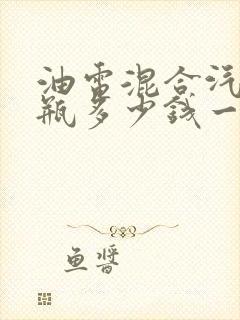 油電混合汽
瓶多少錢一
鱼醬